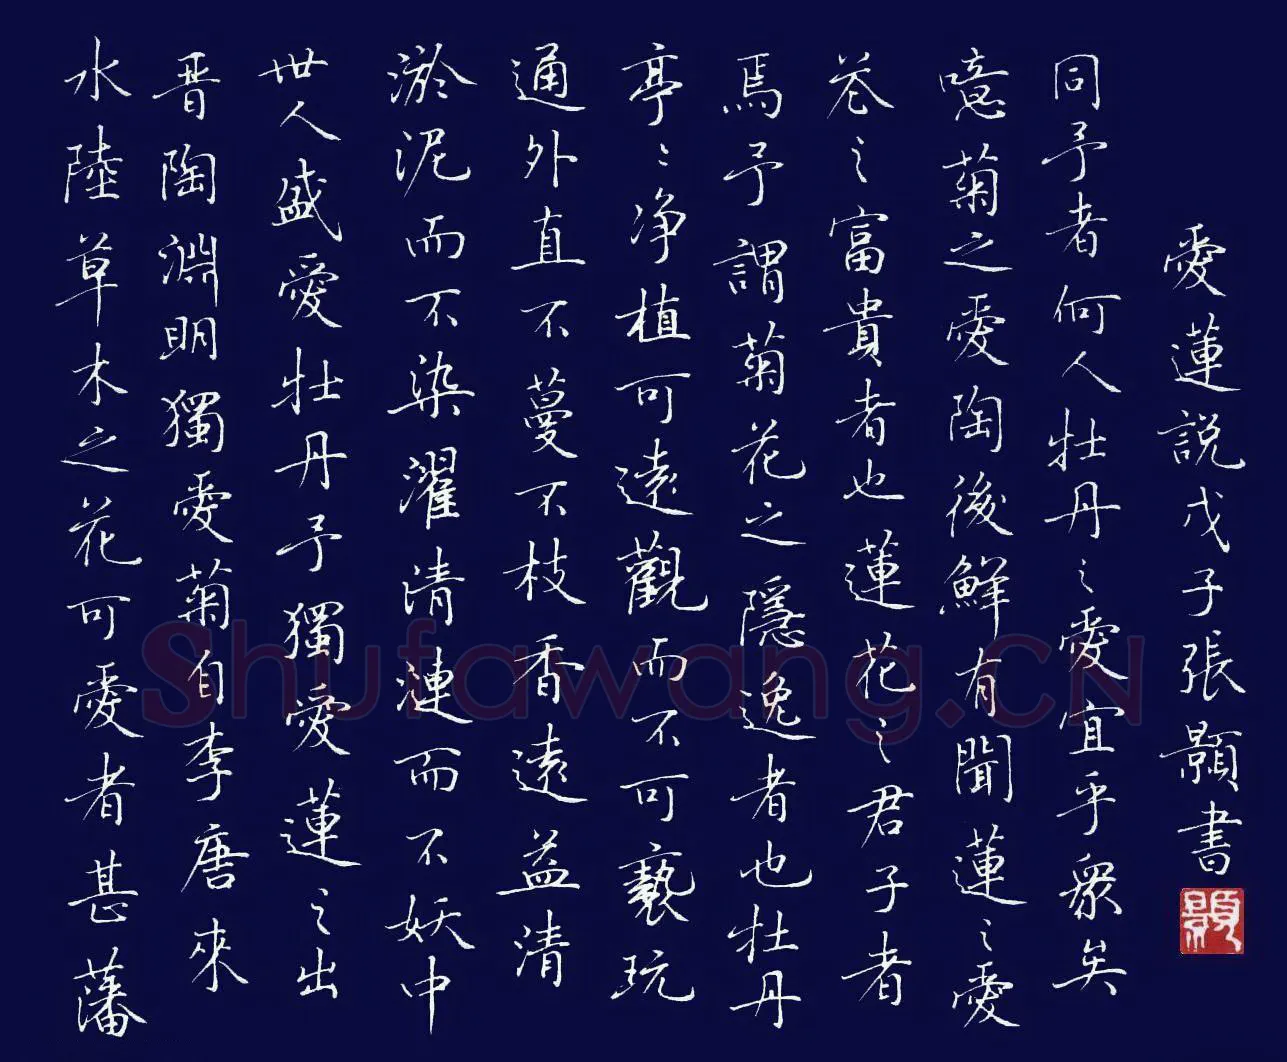 水陸草木之花可愛者甚藩
晋陶淵明獨愛菊自李唐來
世人盛愛牡丹予獨愛蓮之出
淤泥而不染濯清漣而不妖中
通外直不蔓不枝香遠益清
亭〻净植可遠觀而不可褻玩
焉予謂菊花之隱逸者也牡丹
花之富貴者也蓮花之君子者
噫菊之愛陶後鮮有聞蓮之愛
同予者何人牡丹之愛宜乎衆矣
愛蓮説戊子張顥書
顥
Shufawang.CN